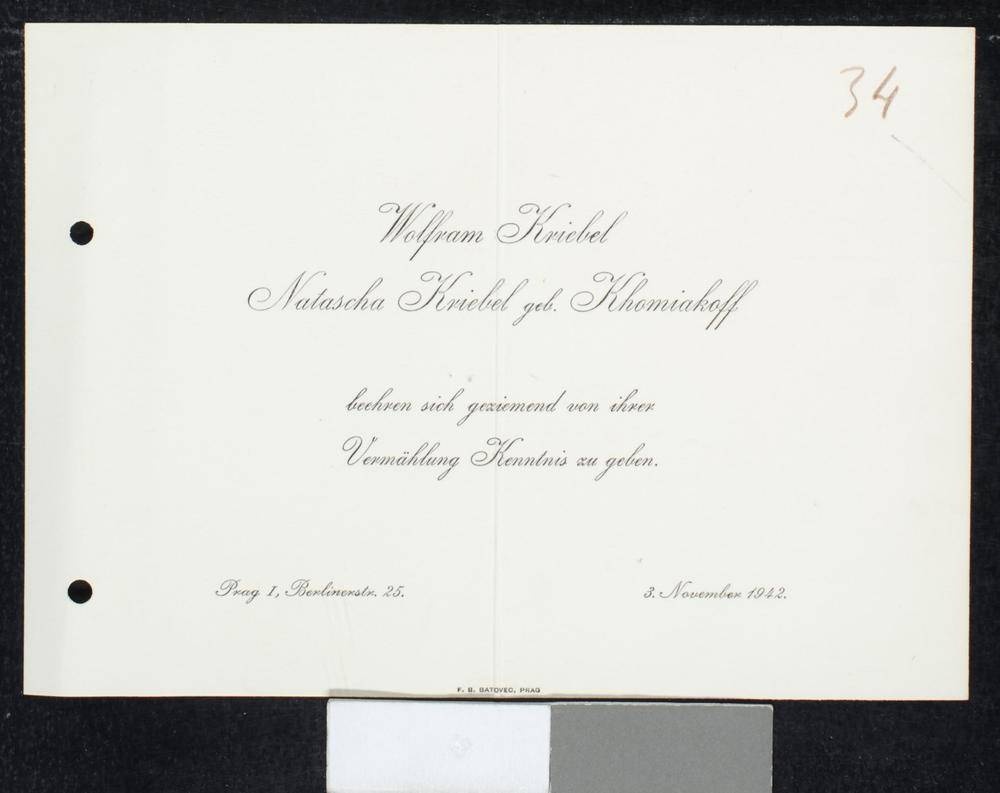 34
Wolfram Kriebel
Natascha Kriebel geb. Khomiakoff
beehren sich geziemend von ihrer
Vermählung Kenntnis zu geben.
Prag I, Berlinerstr. 25.
3. November 1942.
F. B. BATOVEC, PRAG